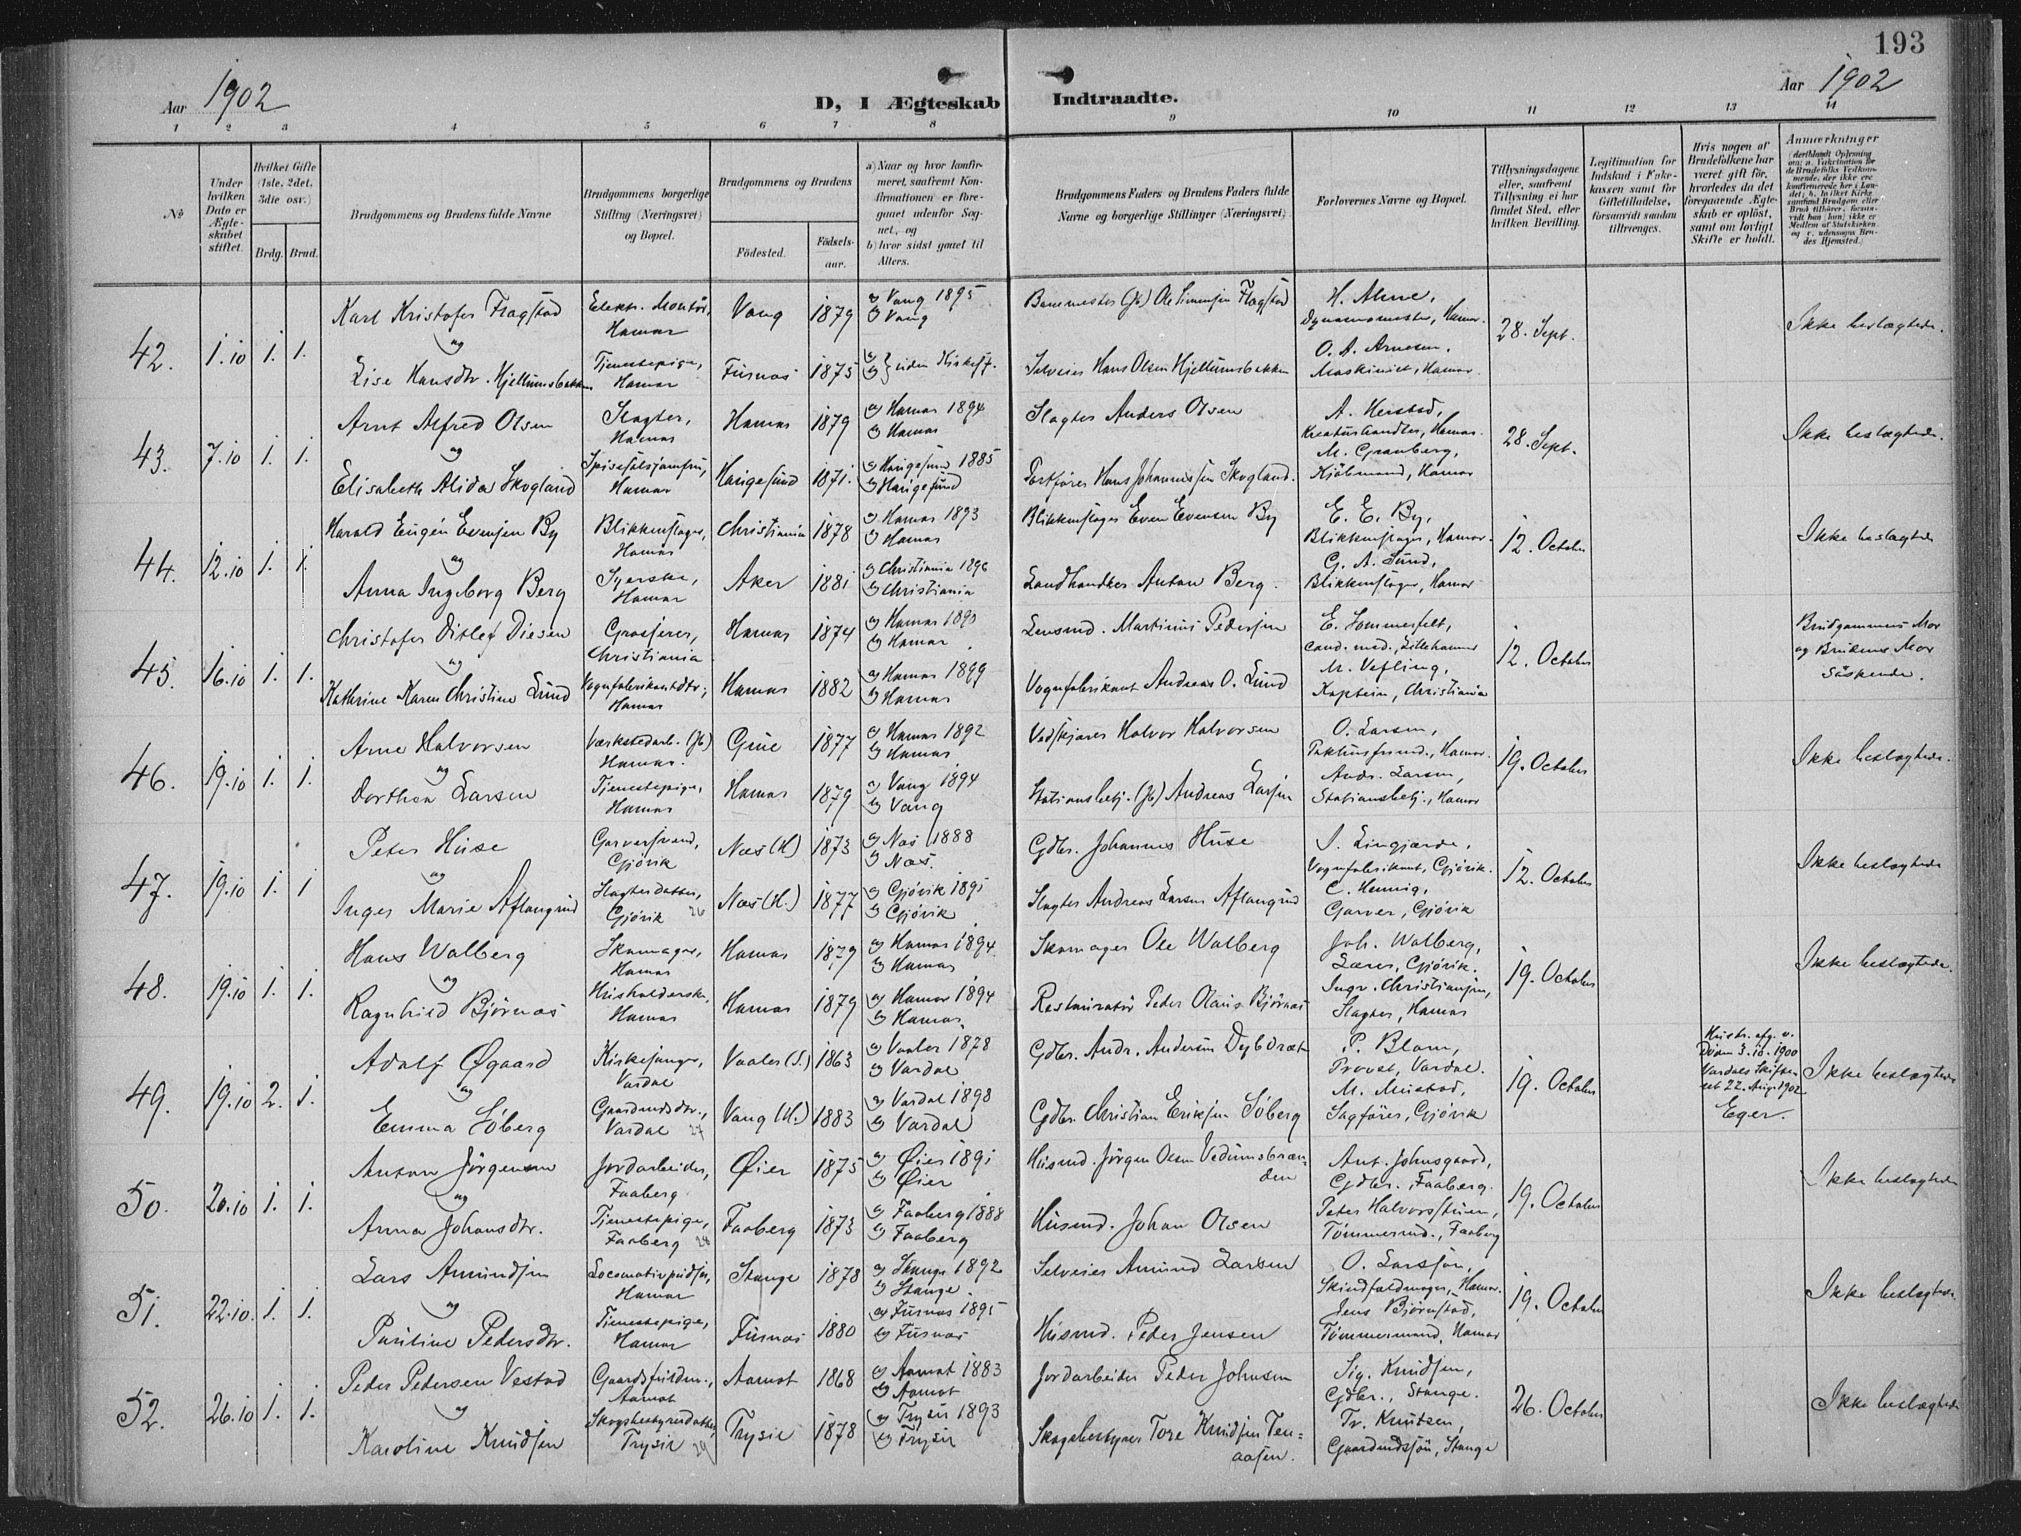 193
Aar 1902
D, I Ægteskab Indtraadte.
Aar 1902
1 2 3 4 5 6 7 8 9 10 11 12 13 14
№
Under hvilken Dato er Ægteskabet stiftet.
Hvilket Gifte (1ste, 2det, 3die osv.)
Brdg. Brud.
Brudgommens og Brudens fulde Navne
Brudgommens borgerlige Stilling (Næringsvei) og Bopæl.
Brudgommens og Brudens
Födested.
Födselsaar.
a) Naar og hvor konfirmeret, saafremt Konfirmationen er foregaaet udenfor Sognet, og
b) hvor sidst gaaet til Alters.
Brudgommens Faders og Brudens Faders fulde Navne og borgerlige Stillinger (Næringsvei)
Forlovernes Navne og Bopæl.
Tillysningsdagene eller, saafremt Tillysning ei har fundet Sted, efter hvilken Bevilling.
Legitimation for Indskud i Enkekassen samt for Giftetilladelse, forsaavidt saadan tiltrænges.
Hvis nogen af Brudefolkene har været gift för, hvorledes da det foregaaende Ægteskab er oplöst, samt om lovligt Skifte er holdt.
Anmærkninger
42. 1.10 1. 1.
Karl Kristofer Flagstad
Elektr. Montör, Hamar
Vang 1879
a) Vang 1895
b) Vang
Banemester (Jb) Ole Simensen Flagstad
H. Alme,
Dynamomester, Hamar.
28. Sept.
Ikke beslægtede.
og
Lise Hansdtr. Hjellumsbakken
Tjenestepige, Hamar
Furnæs 1875
Selveier Hans Olsen Hjellumsbakken
O. A. Arnesen,
Maskinist, Hamar.
43. 7.10 1. 1.
Arnt Alfred Olsen
Slagter, Hamar
Hamar 1879
a) Hamar 1894
b) Hamar
Slagter Anders Olsen
A. Herstad,
Kreaturhandler, Hamar.
28. Sept.
Ikke beslægtede.
og
Elisabeth Alida Skogland
Hamar
Haugesund 1871.
a) Haugesund 1885
b) Haugesund
Hans Johannessen Skogland.
M. Granberg,
Kjöbmand, Hamar
44. 12.10 1. 1.
Harald Eugén Evensen By
Blikkenslager, Hamar
Christiania 1878
a) Hamar 1893
b) Hamar
Blikkenslager Even Evensen By
E. E. By,
Blikkenslager, Hamar.
12. October
Ikke beslægtede
og
Anna Ingeborg Berg
Syerske, Hamar
Aker 1881
a) Christiania 1896
b) Christiania
Landhandler Anton Berg.
G. A. Lund,
Blikkenslager, Hamar
45. 16.10 1. 1.
Christofer Ditlef Diesen
Grosserer, Christiania
Hamar 1874
a) Hamar 1890
b) Hamar
Lensmd. Martinius Pedersen
E. Sommerfelt,
cand. med., Lillehammer
12. October
Brudgommens Mor
og Brudens Mor
Söskende.
og
Kathrine Karen Christine Lund
Vognfabrikantdtr., Hamar
Hamar 1882
a) Hamar 1899
b) Hamar
Vognfabrikant Andreas O. Lund
M. Vefling,
Kaptein, Christiania
46. 19.10 1. 1.
Arne Halvorsen
Værkstedarb. (Jb) Hamar.
Grue 1877
a) Hamar 1892
b) Hamar
Vedskjærer Halvor Halvorsen
O. Larsen,
Pakhusformd., Hamar.
19. October
Ikke beslægtede.
og
Dorthea Larsen
Tjenestepige, Hamar
Hamar 1879
a) Vang 1894
b) Vang
Stationsbetj. (Jb) Andreas Larsen
Andr. Larsen,
Stationsbetj., Hamar
47. 19.10 1. 1
Peter Huse
Garversvend, Gjövik
Næs (H) 1873
a) Næs 1888
b) Næs.
Gdbr. Johannes Huse
Vognfabrikant, Gjövik.
12. October
Ikke beslægtede
og
Inger Marie Aflangrud
Slagterdatter, Gjövik 26
Næs (H.) 1877
a) Gjövik 1891
b) Gjövik
Slagter Andreas Larsen Aflangrud
C. Hennig,
Garver, Gjövik
48. 19.10 1. 1.
Hans Walberg
Skomager, Hamar
Hamar 1879
a) Hamar 1894.
b) Hamar
Skomager Ole Walberg
Joh. Walberg,
Lærer, Gjövik.
19. October
Ikke beslægtede.
og
Ragnhild Björnaas
Husholderske, Hamar
Hamar 1879
a) Hamar 1894
b) Hamar.
Restauratör Peder Olaus Björnaas
Ingv. Christiansen,
Slagter, Hamar
49. 19.10 2. 1.
Adolf Øgaard
Kirkesanger, Vardal
Vaaler (S.) 1863
a) Vaaler 1878
b) Vardal
Gdbr. Andr. Andersen Dybdræt
P. Blom,
Provst, Vardal.
19. October
Hustr. afg. v. Döden 3.10.1900
Vardals Skifteret 22. Aug. 1902
Eger.
Ikke beslægtede
og
Emma Söberg
Gaardmdsdtr., Vardal 27
Vang (H.) 1883
a) Vardal 1898
b) Vardal
Gdbr. Christian Eriksen Söberg
M. Mustad,
Sagförer, Gjövik
50. 20.10 1. 1.
Anton Jörgensen
Jordarbeider, Faaberg.
Øier 1875
a) Øier 1891
b) Øier
Husmd. Jörgen Olsen Vedumsbrænden
Ant. Johnsgaard,
Gdbr., Faaberg.
19. October
Ikke beslægtede
og
Anna Johansdtr.
Tjenestepige, Faaberg 28
Faaberg 1873
a) Faaberg 1888
b) Faaberg
Husmd. Johan Olsen
Peter Halvorsstuen,
Tömmermd., Faaberg
51. 22.10. 1. 1.
Lars Amundsen
Locomotivpudser, Hamar
Stange 1878
a) Stange 1892
b) Stange.
Selveier Amund Larsen
O. Larssön,
Skindfeldmager, Hamar.
19. October
Ikke beslægtede.
og
Pauline Pedersdtr.
Tjenestepige, Hamar
Furnæs 1880
a) Furnæs 1895
b) Furnæs
Husmd. Peder Jensen
Jens Björnstad,
Tömmermand, Hamar
52. 26.10 1. 1.
Peder Pedersen Vestad
Aamot
Aamot 1868
a) Aamot 1883
b) Aamot
Jordarbeider Peder Johnsen
Sig. Knudsen,
Gdbr., Stange.
26. October
Ikke beslægtede
og
Karoline Knudsen
Skogbestyrerdatter, Trysil 29
Trysil 1878
a) Trysil 1893
b) Trysil
Skogbestyrer Tore Knudsen Tenaasen.
Tr. Knutsen,
Gaardmdssön, Stange